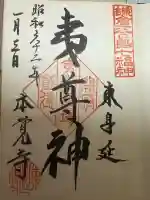 鎌倉江ノ島七福神
東身延
夷尊神
昭和六十二年
一月三日
本覚寺